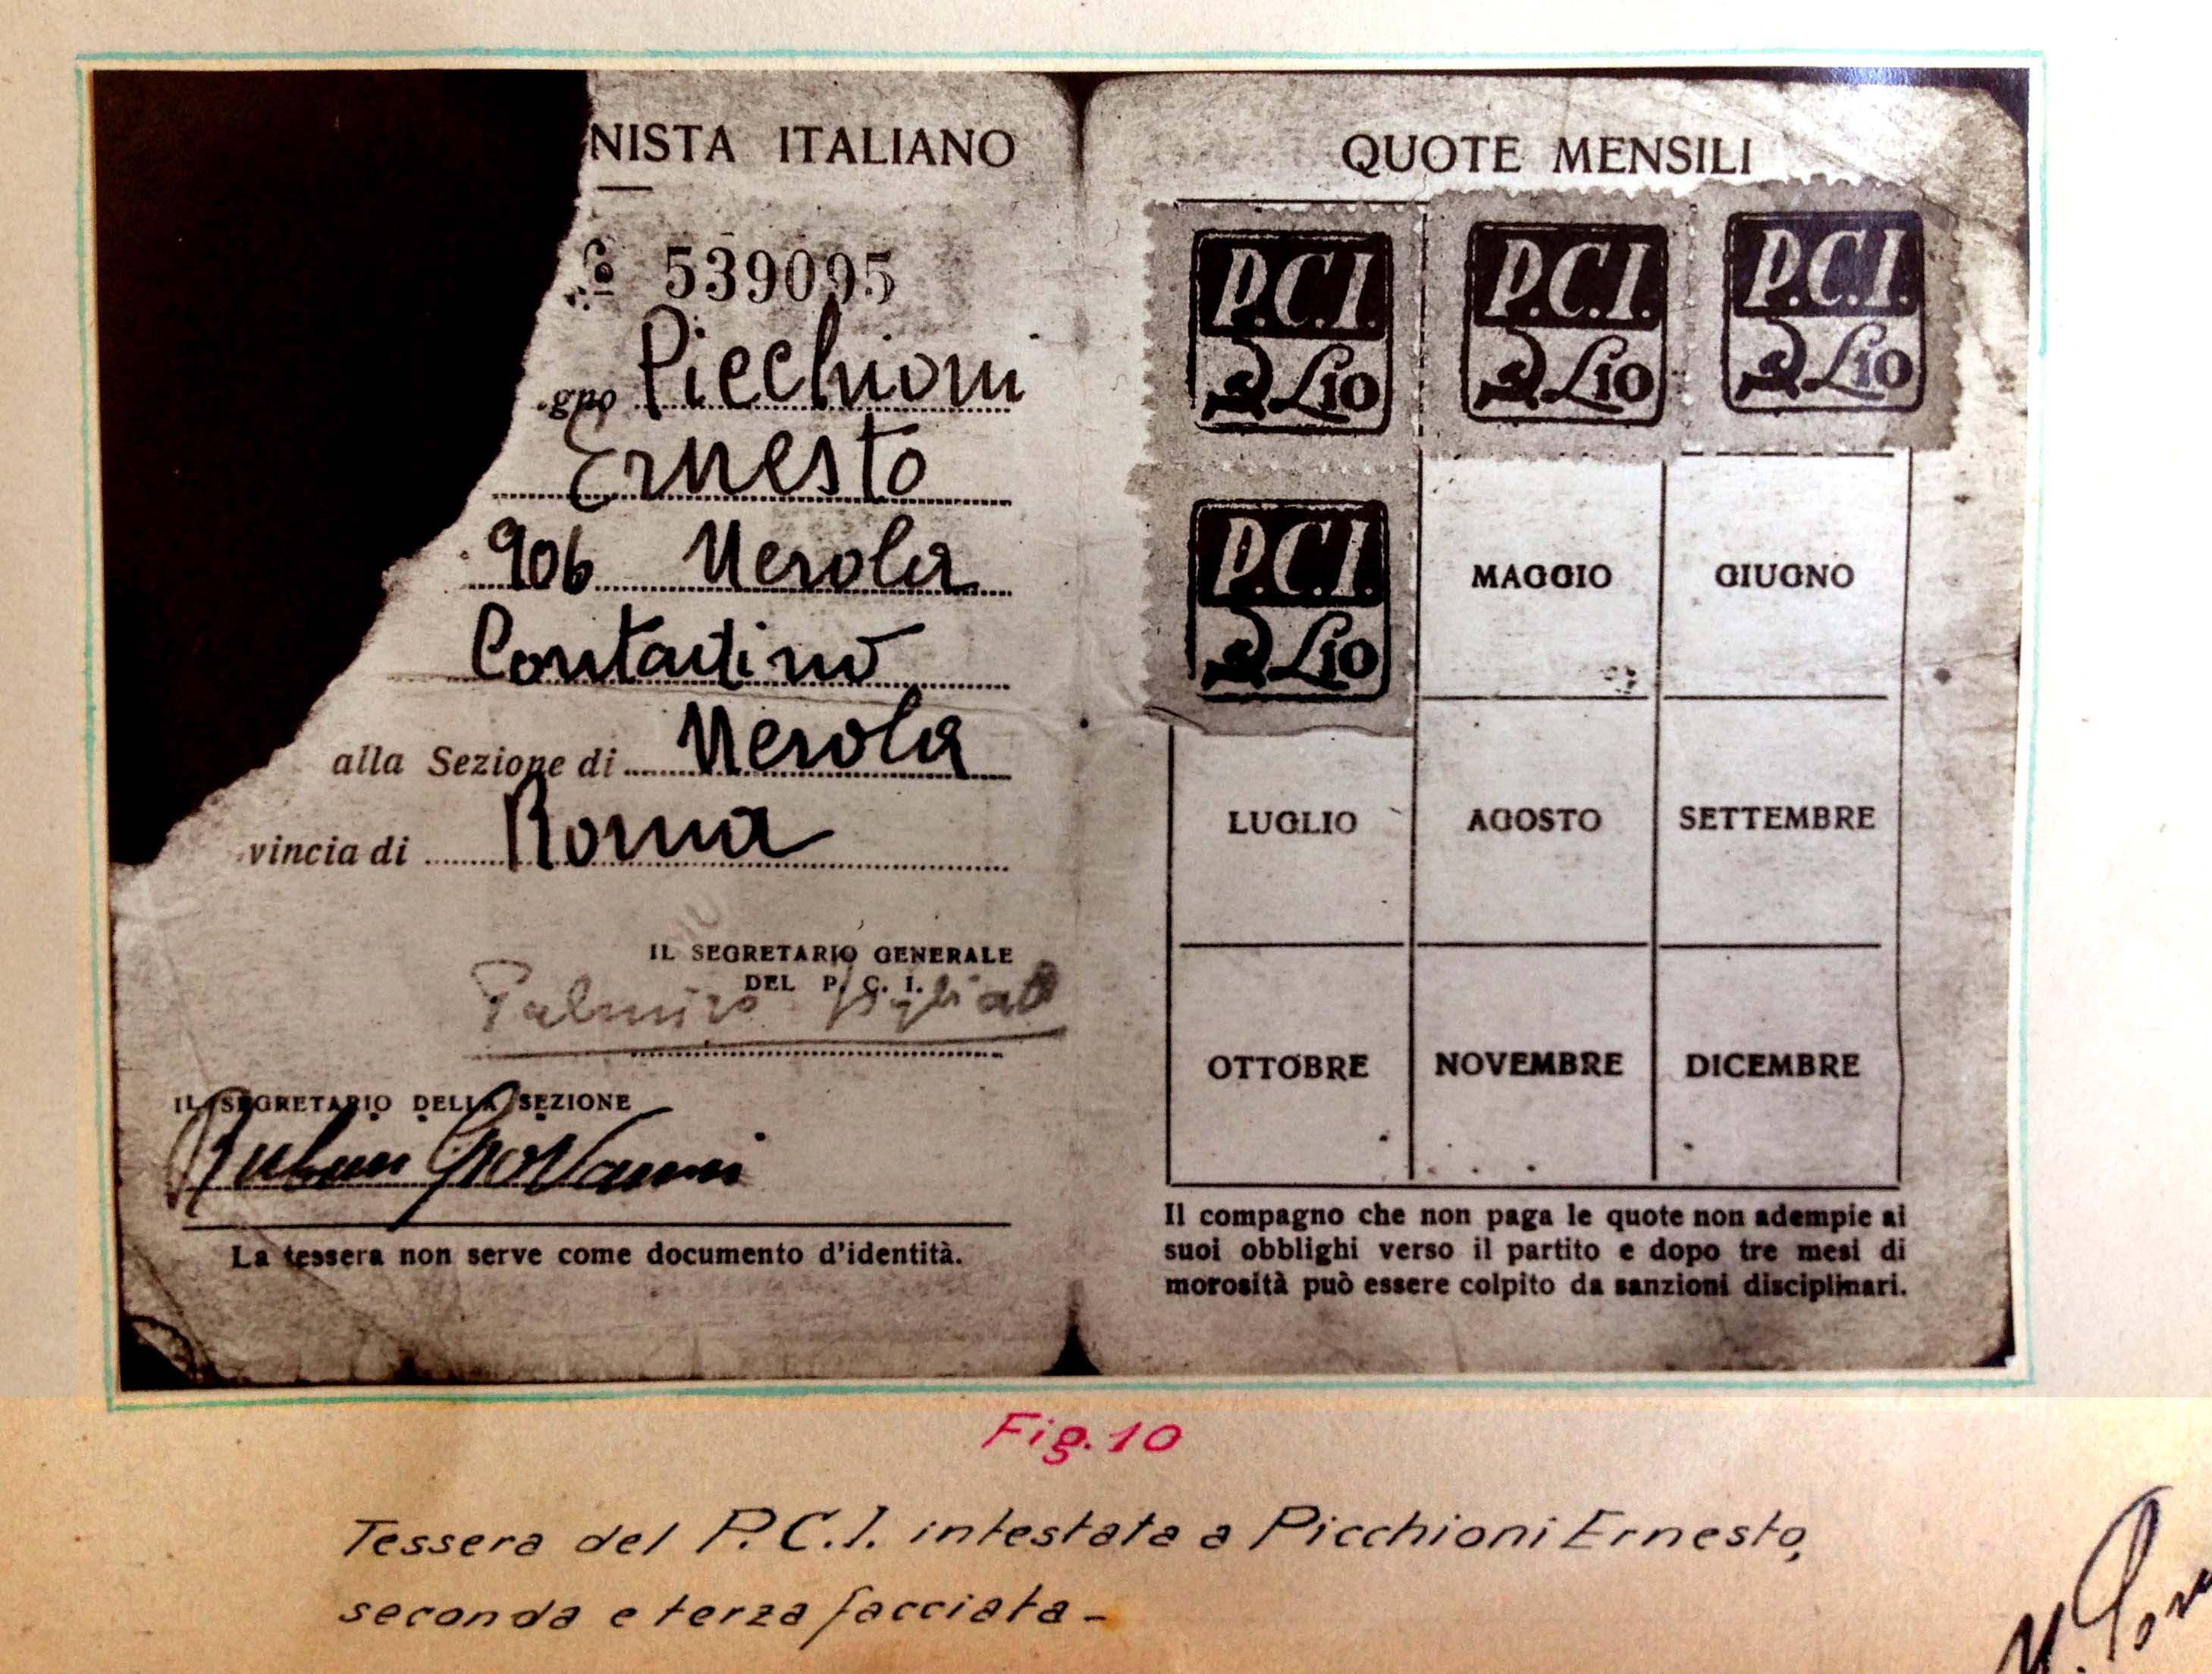 NISTA ITALIANO
º 539095
gno Picchioni
Ernesto
906 Nerola
Contadino
alla Sezione di Nerola
vincia di Roma
IL SEGRETARIO GENERALE
DEL P. C. I.
Palmiro Togliatti
IL SEGRETARIO DELLA SEZIONE
Giovanni
La tessera non serve come documento d'identità.
QUOTE MENSILI
P.C.I. P.C.I. P.C.I.
L10 L10 L10
P.C.I.
L10
MAGGIO GIUGNO
LUGLIO AGOSTO SETTEMBRE
OTTOBRE NOVEMBRE DICEMBRE
Il compagno che non paga le quote non adempie ai
suoi obblighi verso il partito e dopo tre mesi di
morosità può essere colpito da sanzioni disciplinari.
Fig. 10
Tessera del P.C.I. intestata a Picchioni Ernesto,
seconda e terza facciata -